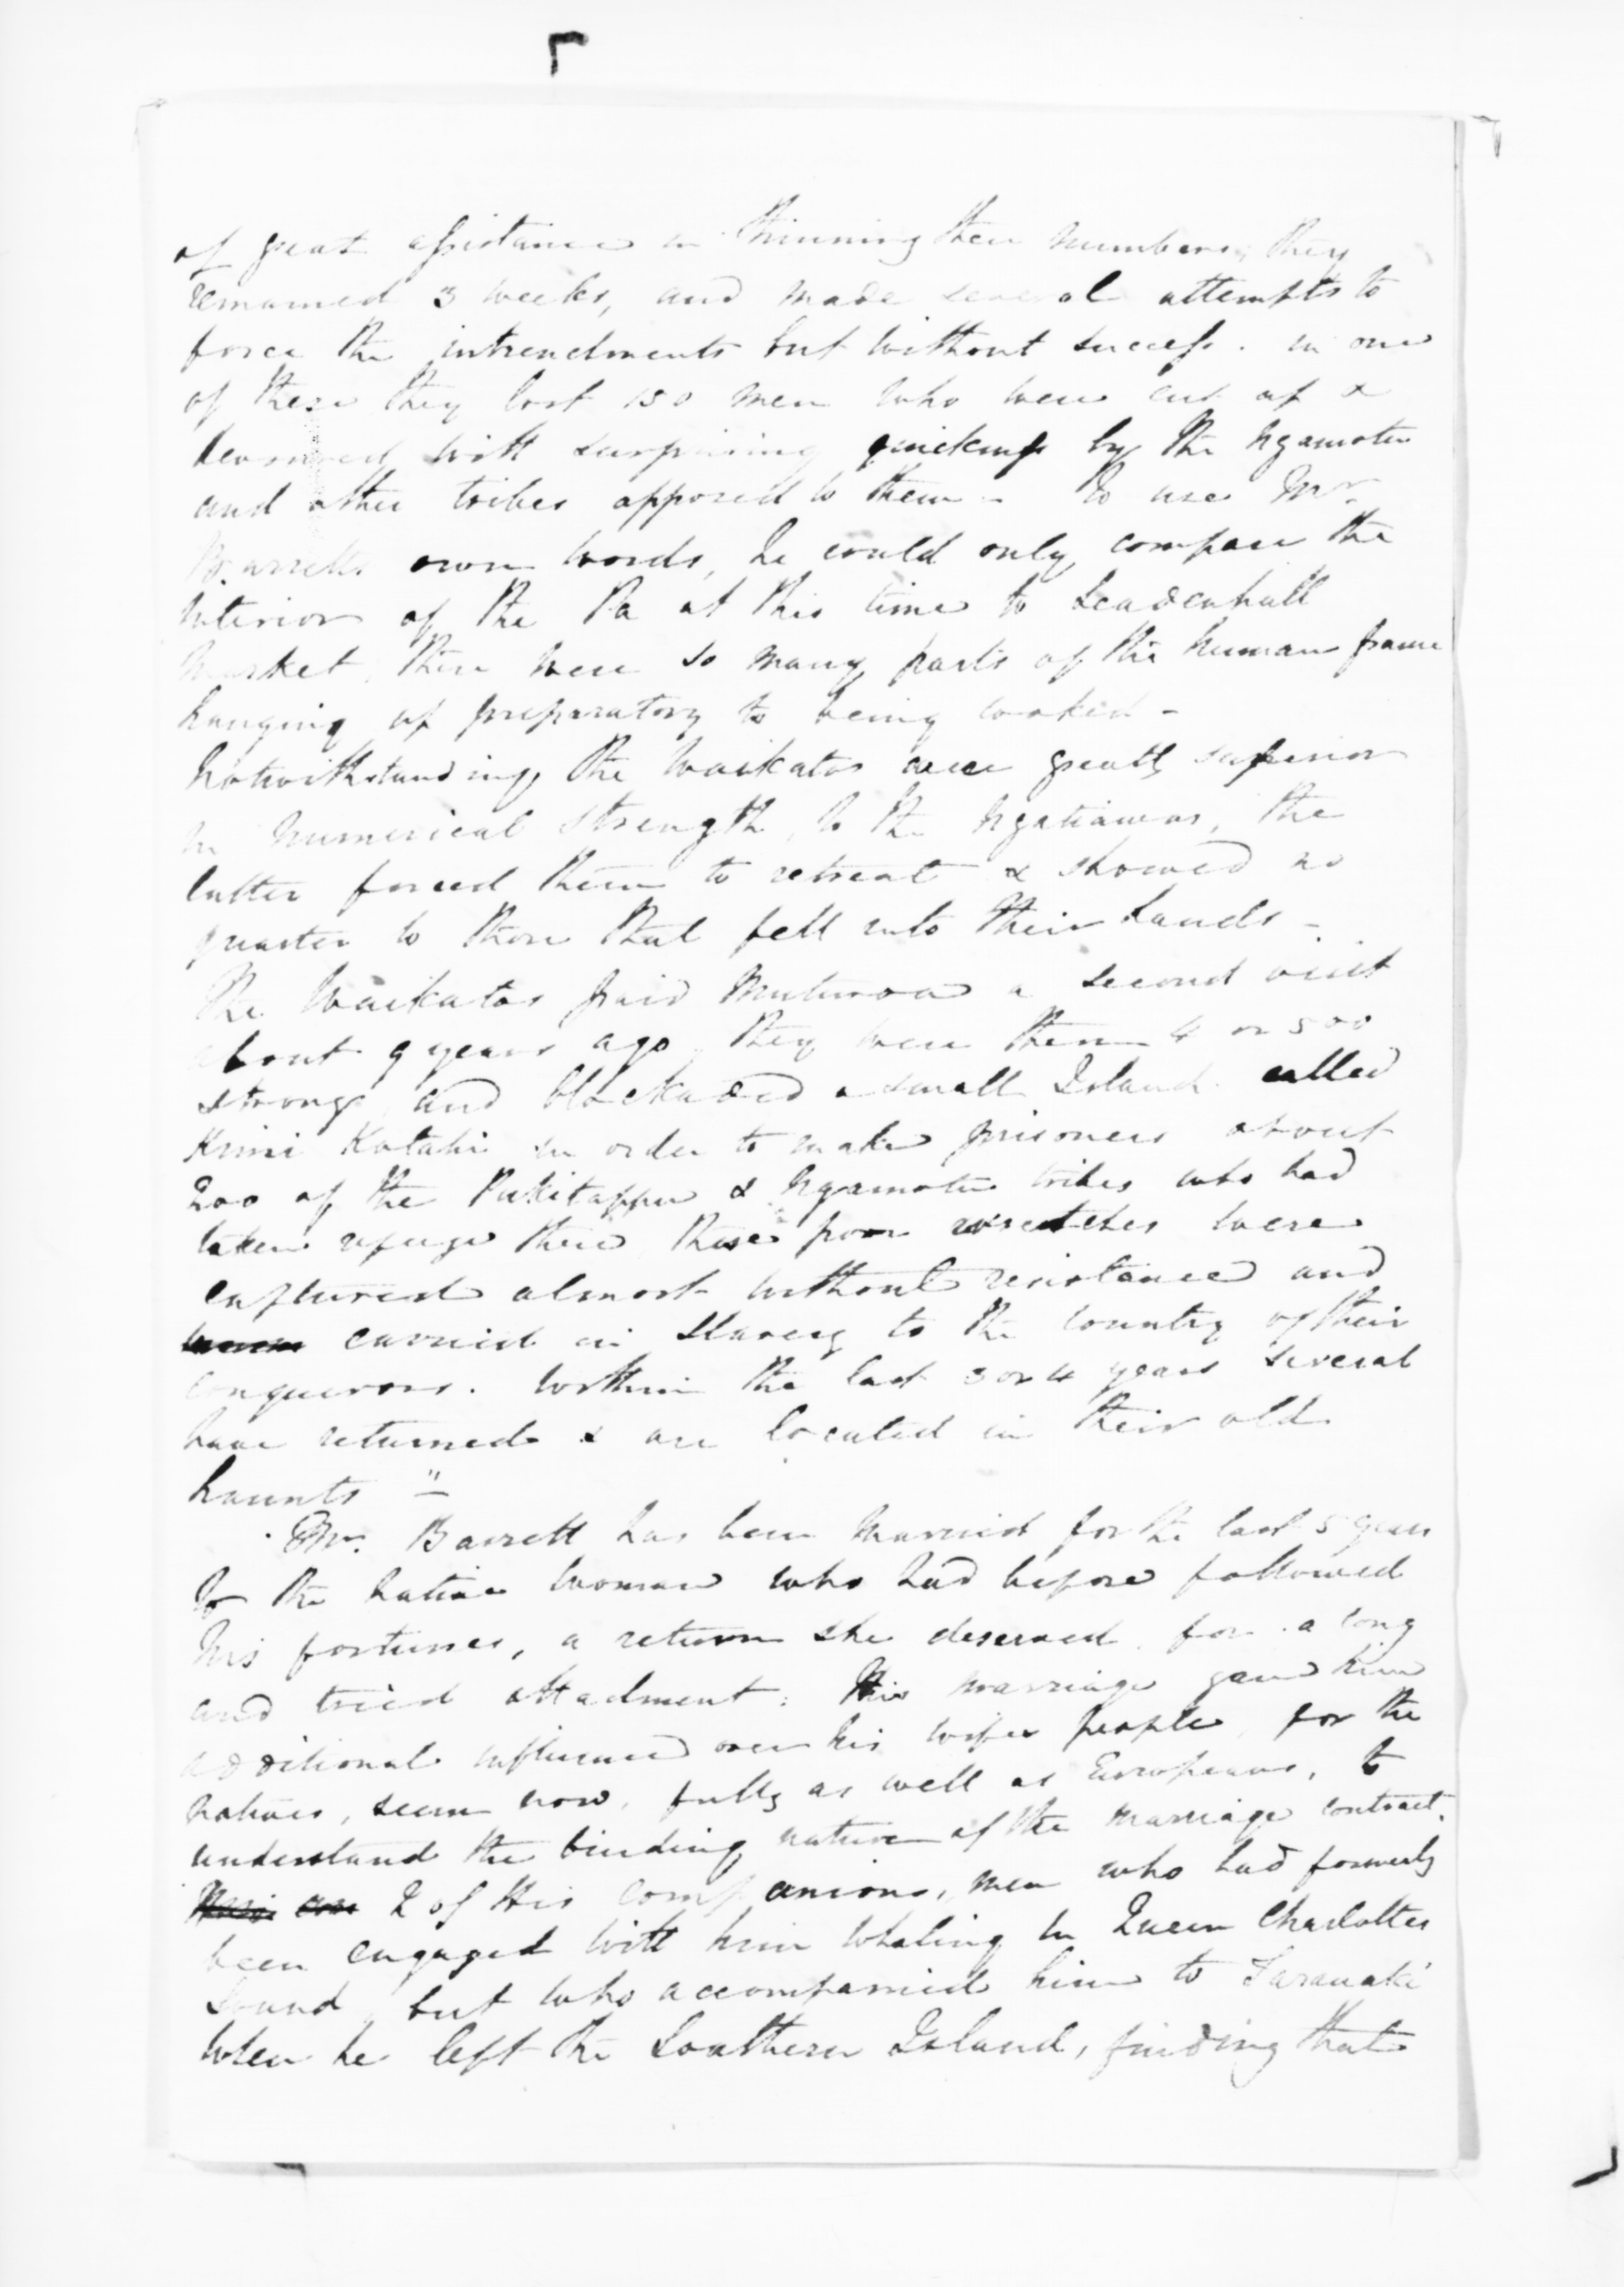 of great assistance in thinning their numbers, they
remained 3 weeks, and made several attempts to
force the intrenchments but without success. in one
of these they lost 150 men who were cut up &
devoured with surprising quickness by the Ngamotu
and other tribes opposed to them - To use Mr.
Barretts own words, he could only compare the
interior of the Pa at this time to Leadenhall
market, there were so many parts of the human frame
hanging up preparatory to being cooked -
Notwithstanding, the Waikatos were greatly superior
in numerical strength, to the Ngatiawas, the
latter forced them to retreat & showed no
quarter to those that fell into their hands -
The Waikatos paid Muturoa a second visit
about 9 years ago, they were then 4 or 500
strong, and blockaded a small Island called
Kotahi in order to make prisoners about
200 of the Pukitappu & Ngamotu tribes who had
taken refuge there, these poor wretches were
captured almost without resistance and
carried in slavery to the Country of their
conquerors. Within the last 3 or 4 years several
have returned & are located in their old
haunts "
Mr. Barrett has been married for the last 5 years
to the native woman who had before followed
his fortunes, a return she deserved for a long
and tried attachment. This marriage gave him
additional influence over his wifes people, for the
natives, seem now, fully as well as Europeans, to
understand the binding nature of the marriage contract.
2 of his companions, men who had formerly
been engaged with him whaling in Queen Charlottes
Sound, but who accompanied him to Taranaki
when he left the Southern Island, finding that